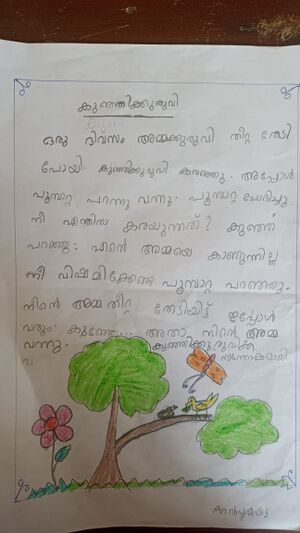 കുഞ്ഞിക്കുരുവി
ഒരു ദിവസം അമ്മക്കുരുവി തീറ്റ തേടി
പോയി. കുഞ്ഞിക്കുരുവി കരഞ്ഞു. അപ്പോൾ
പൂമ്പാറ്റ പറന്നു വന്നു. പൂമ്പാറ്റ ചോദിച്ചു
നീ എന്തിനാ കരയുന്നത്? കുഞ്ഞ്
പറഞ്ഞു: എൻ്റെ അമ്മയെ കാണുന്നില്ല
നീ വിഷമിക്കേണ്ട പൂമ്പാറ്റ പറഞ്ഞു.
നിൻ്റെ അമ്മ തീറ്റ തേടിയിട്ട് ഇപ്പോൾ
വരും. കുഞ്ഞേ... അതാ നിൻ്റെ അമ്മ
വന്നു. കുഞ്ഞിക്കുരുവിക്ക്
സന്തോഷമായി